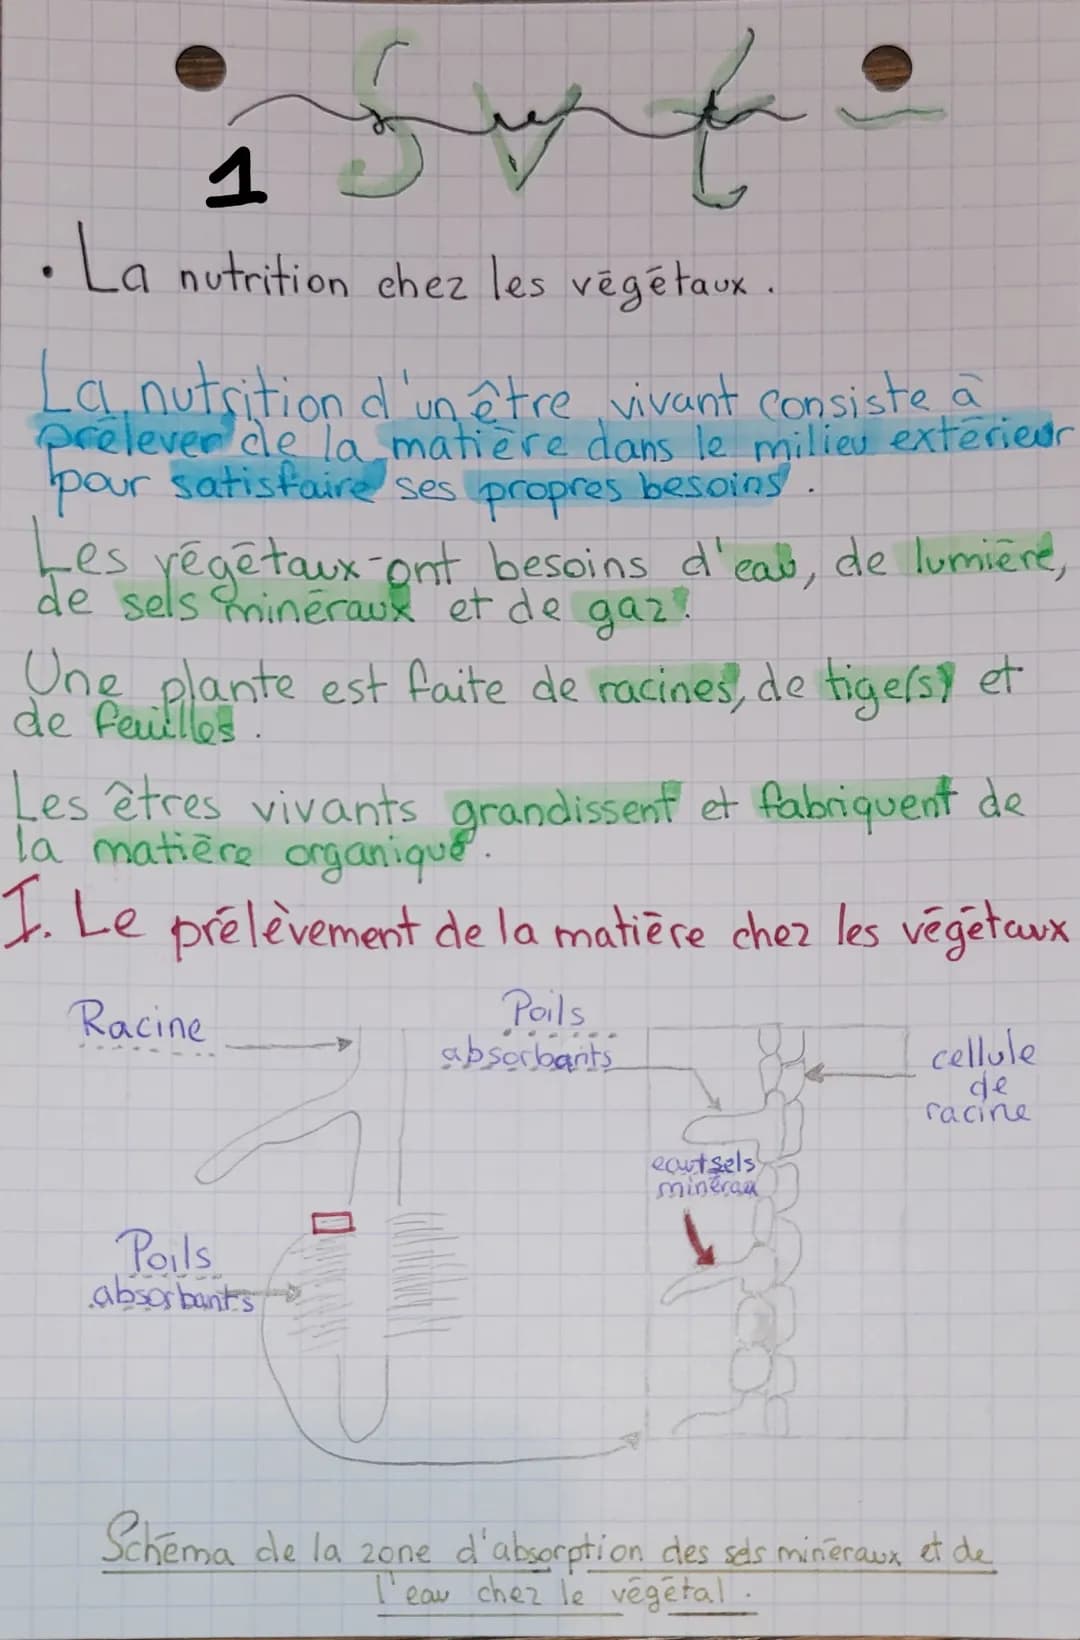 Svt
1
• La nutrition chez les végétaux.
La nutrition d'un être vivant consiste à
prélever de la matière dans le milieu extérieur
pour satisfaire ses propres besoins.
Les végétaux ont besoins d'eau, de lumière,
de sels minéraux et de gaz.
Une plante est faite de racines, de tige(s) et
de feuilles.
Les êtres vivants grandissent et fabriquent de
la matière organique.
I. Le prélèvement de la matière chez les végétaux
Racine
Poils
absorbants
cellule
de
racine
eau+sels
minérau
Poils
absorbants
Schéma de la zone d'absorption des sels minéraux et de
l'eau chez le végétal.